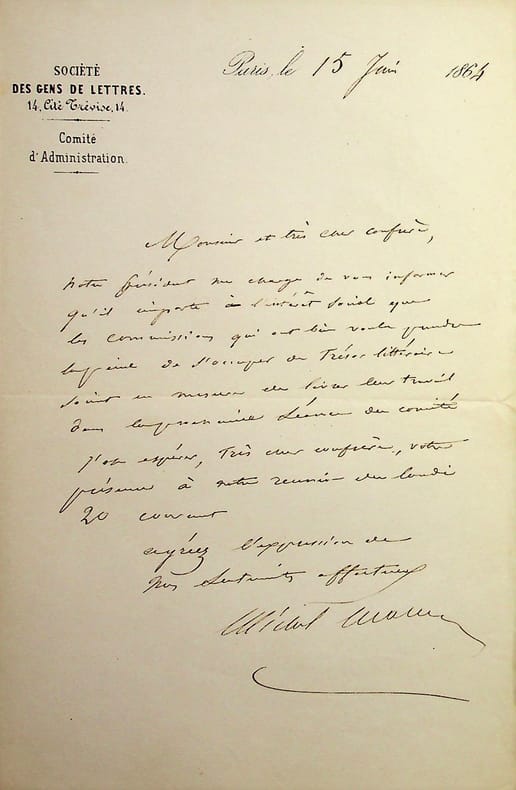 SOCIÉTÉ
DES GENS DE LETTRES.
14, Cité Trévise, 14.
Comité
d'Administration.
Paris, le 15 Juin 1864
Monsieur et très cher confrère,
Notre président me charge de vous informer
qu'il importe à l'intérêt social que
les commissions qui ont bien voulu prendre
la peine de s'occuper du Trésor littéraire
soient en mesure de livrer leur travail
dans la prochaine Séance du comité
J'ose espérer, très cher confrère, votre
présence à notre réunion du lundi
20 courant
agréez l'expression de
nos sentiments affectueux
Michel Masson